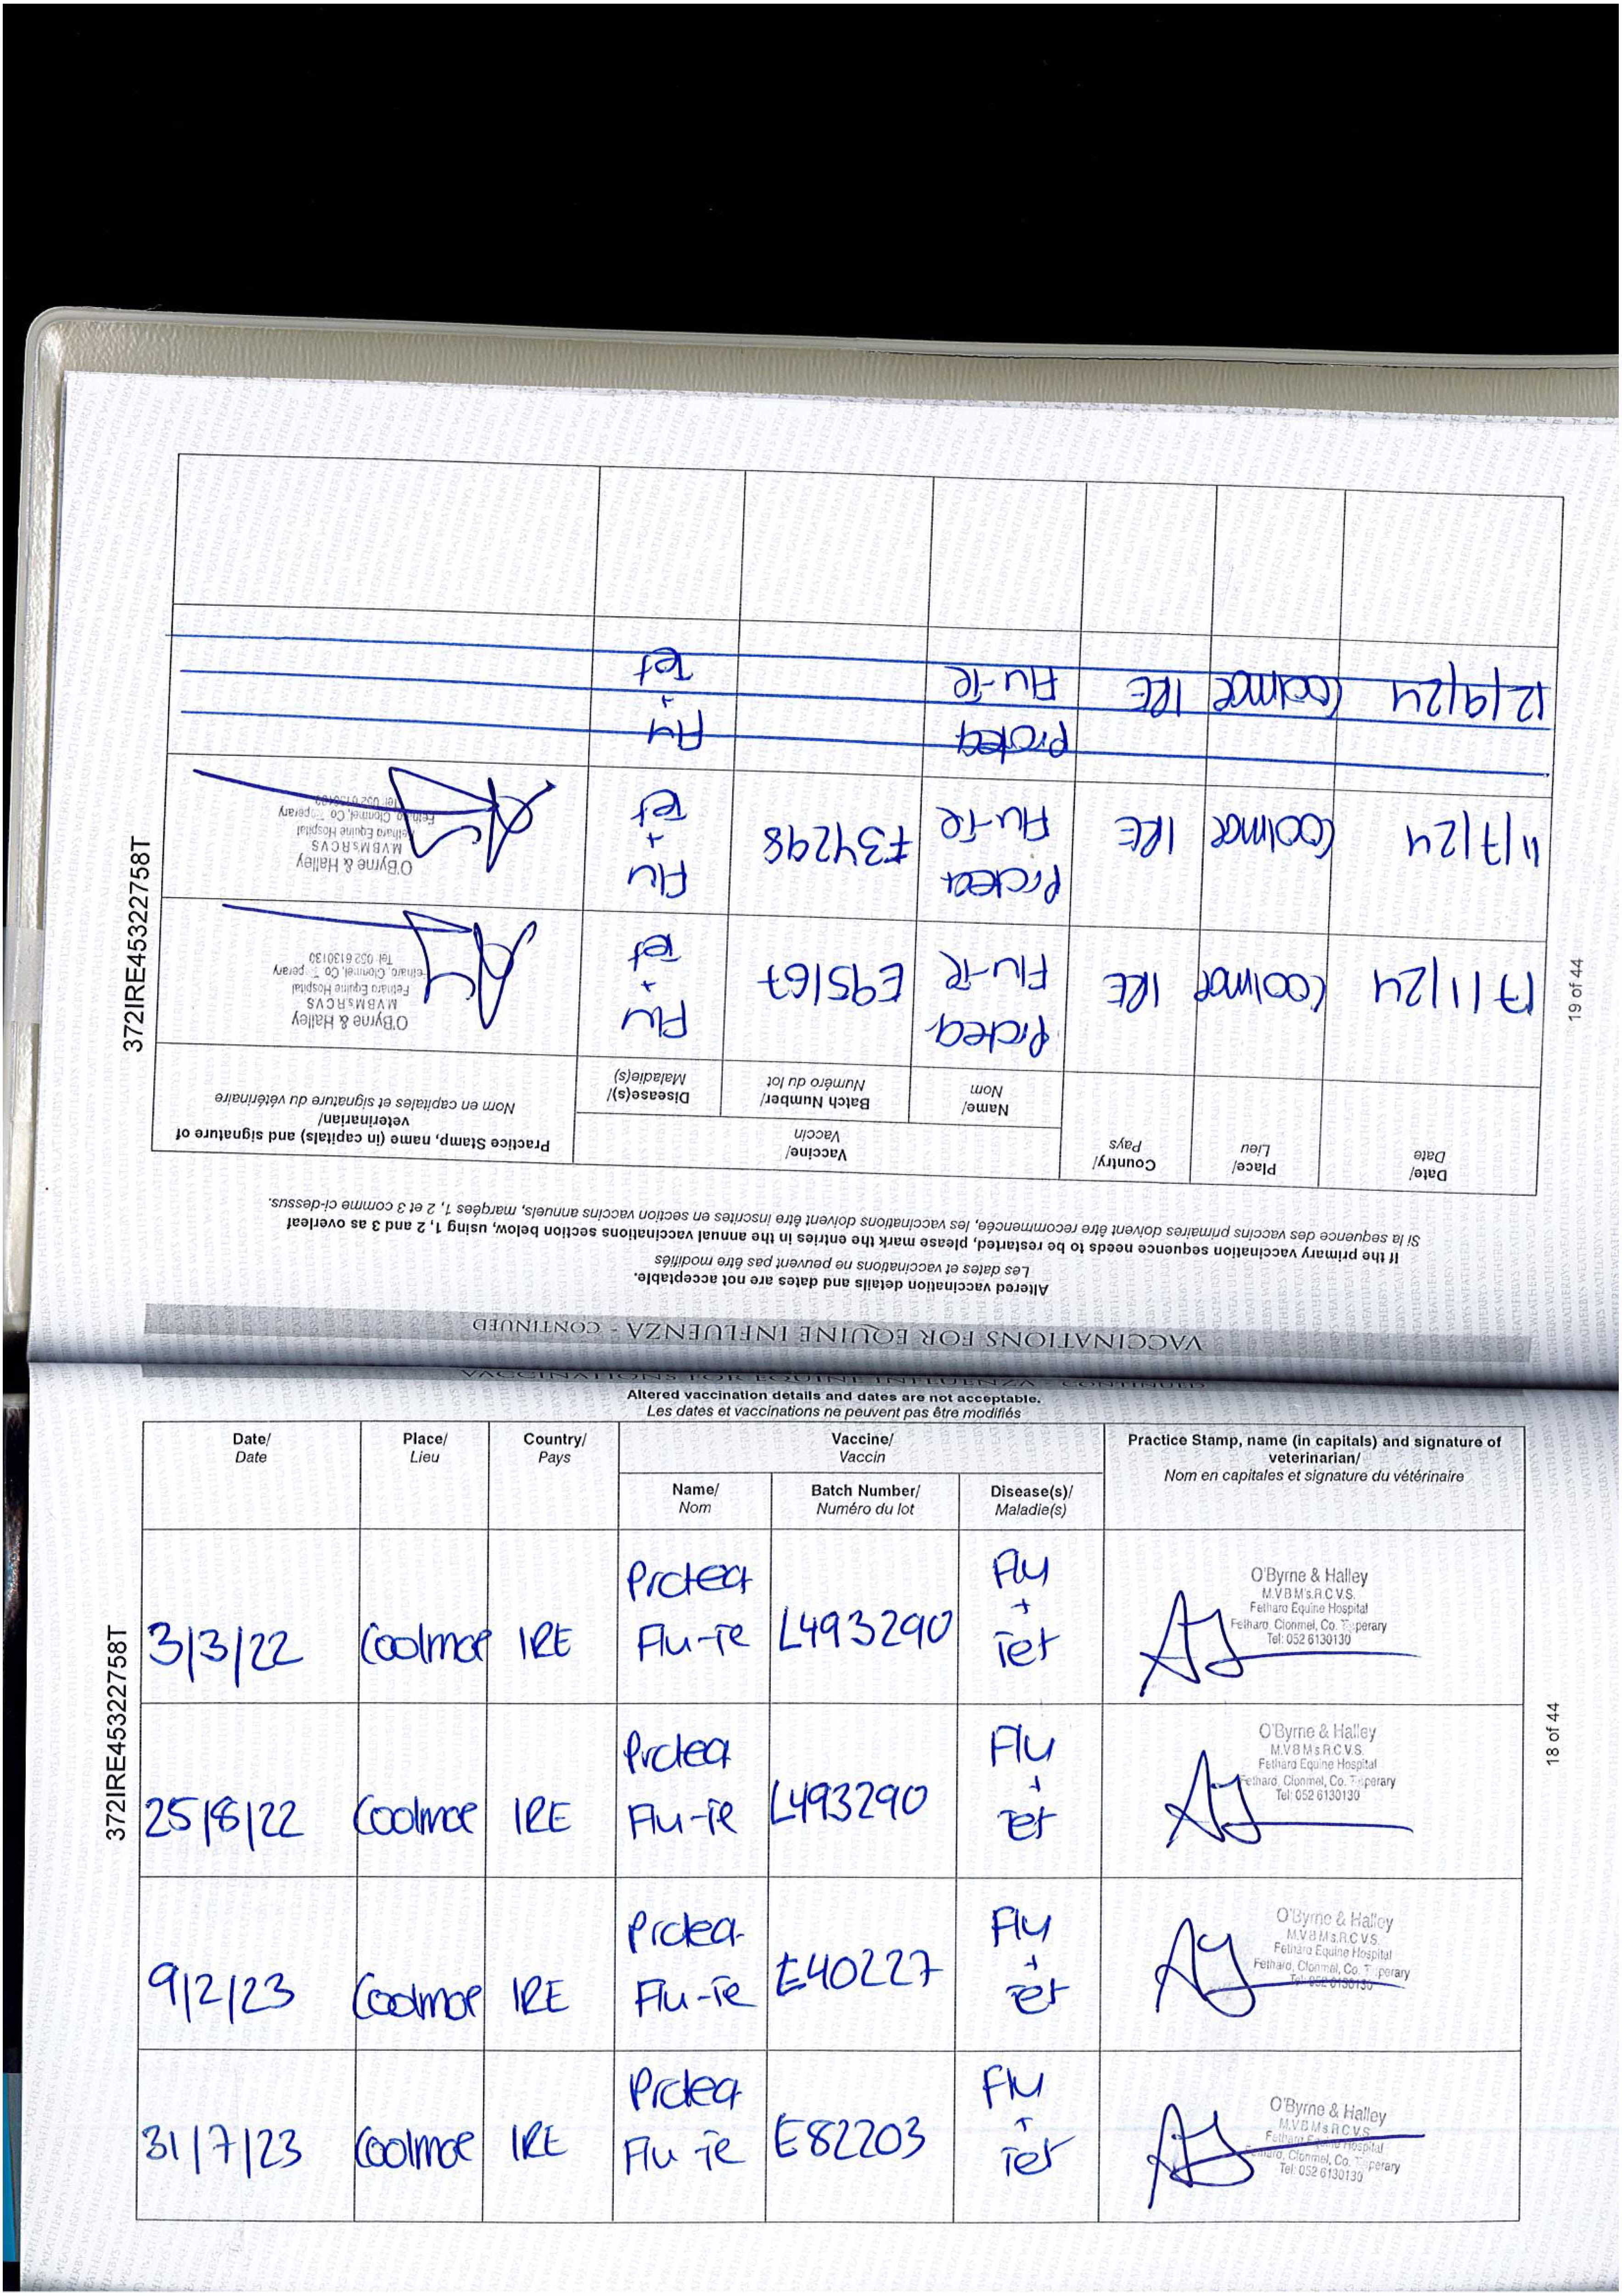 VACCINATIONS FOR EQUINE INFLUENZA - CONTINUED
Altered vaccination details and dates are not acceptable.
Les dates et vaccinations ne peuvent pas être modifiés
Date/ Date
Place/ Lieu
Country/ Pays
Vaccine/ Vaccin
Name/ Nom
Batch Number/ Numéro du lot
Disease(s)/ Maladie(s)
Practice Stamp, name (in capitals) and signature of
veterinarian/
Nom en capitales et signature du vétérinaire
3/3/22 Coolmore IRE Proteq Flu-Te L493290 Flu + Tet
O'Byrne & Halley
M.V.B M's.R.C.V.S.
Fethard Equine Hospital
Fethard, Clonmel, Co. Tipperary
Tel: 052 6130130
25/8/22 Coolmore IRE Proteq Flu-Te L493290 Flu + Tet
O'Byrne & Halley
M.V.B M's R.C.V.S.
Fethard Equine Hospital
Fethard, Clonmel, Co. Tipperary
Tel: 052 6130130
9/2/23 Coolmore IRE Proteq Flu-Te E40227 Flu + Tet
O'Byrne & Halley
M.V.B M's.R.C.V.S.
Fethard Equine Hospital
Fethard, Clonmel, Co. Tipperary
Tel: 052 6130130
31/7/23 Coolmore IRE Proteq Flu Te E82203 Flu + Tet
O'Byrne & Halley
M.V.B M's R.C.V.S.
Fethard Equine Hospital
Fethard, Clonmel, Co. Tipperary
Tel: 052 6130130
372IRE45322758T
18 of 44
VACCINATIONS FOR EQUINE INFLUENZA - CONTINUED
Altered vaccination details and dates are not acceptable.
Les dates et vaccinations ne peuvent pas être modifiés
If the primary vaccination sequence needs to be restarted, please mark the entries in the annual vaccinations section below, using 1, 2 and 3 as overleaf
Si la sequence des vaccins primaires doivent être recommencée, les vaccinations doivent être inscrites en section vaccins annuels, marqées 1, 2 et 3 comme ci-dessus.
Date/ Date
Place/ Lieu
Country/ Pays
Vaccine/ Vaccin
Name/ Nom
Batch Number/ Numéro du lot
Disease(s)/ Maladie(s)
Practice Stamp, name (in capitals) and signature of
veterinarian/
Nom en capitales et signature du vétérinaire
17/1/24 Coolmore IRE Proteq Flu-Te E95167 Flu + Tet
O'Byrne & Halley
M V B M's R C V S
Fethard Equine Hospital
Fethard, Clonmel, Co. Tipperary
Tel: 052 6130130
11/7/24 Coolmore IRE Proteq Flu-Te F34298 Flu + Tet
O'Byrne & Halley
M V B M's R C V S
Fethard Equine Hospital
Fethard, Clonmel, Co. Tipperary
Tel: 052 6130130
12/9/24 Coolmore IRE Proteq Flu-Te Flu + Tet
372IRE45322758T
19 of 44